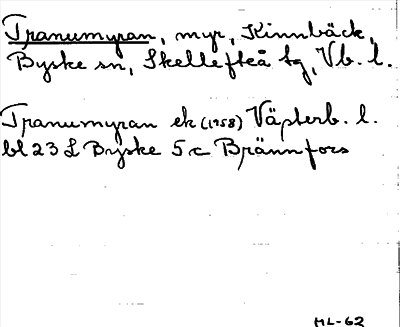 Tranumyran, myr, Kinnbäck,
Byske sn, Skellefteå tg, Vb. l.
Tranumyran ek (1958) Västerb. l.
bl 23 L Byske 5c Brännfors
ML-62